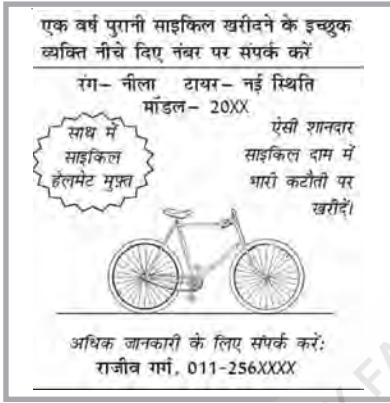 एक वर्ष पुरानी साइकिल खरीदने के इच्छुक
व्यक्ति नीचे दिए नंबर पर संपर्क करें
रंग– नीला टायर– नई स्थिति
मॉडल– 20XX
साथ में
साइकिल
हेलमेट मुफ़्त
ऐसी शानदार
साइकिल दाम में
भारी कटौती पर
खरीदें।
अधिक जानकारी के लिए संपर्क करें:
राजीव गर्ग, 011-256XXXX